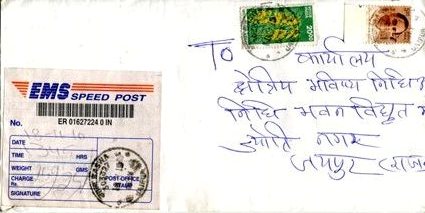 To
कार्यालय
क्षेत्रिय भविष्य निधि
निधि भवन विद्युत म
ज्योति नगर
जयपुर (राज
EMS SPEED POST
ER 01627224 0 IN
No.
DATE
TIME HRS
WEIGHT GMS
CHARGE
Rs.
POST-OFFICE
STAMP
SIGNATURE